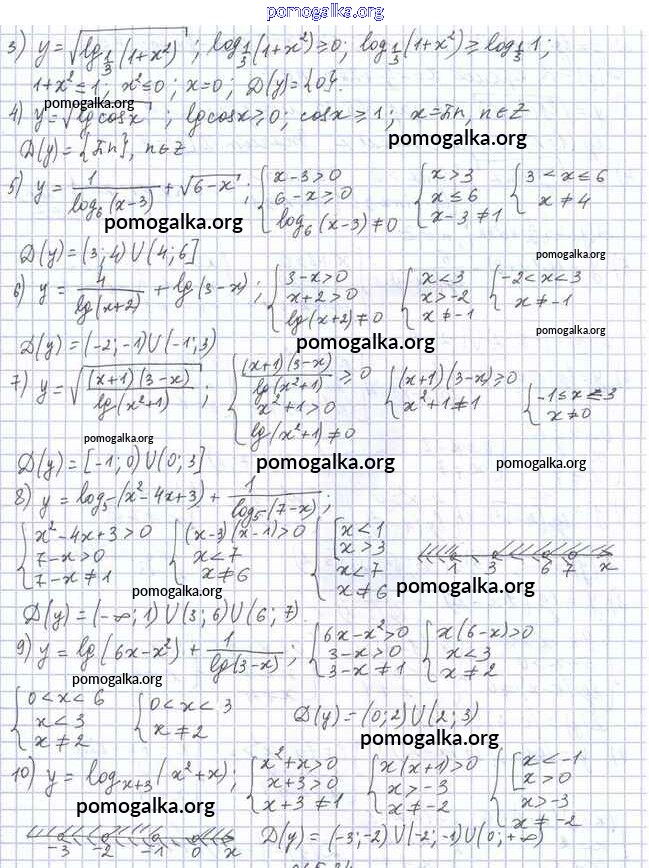 pomogalka.org
3) y = √(log_{1/3}(1+x²)) ; log_{1/3}(1+x²) ≥ 0; log_{1/3}(1+x²) ≥ log_{1/3} 1;
1+x² ≤ 1; x² ≤ 0; x=0; D(y)={0}.
pomogalka.org
4) y = √(lg cosx) ; lg cosx ≥ 0; cosx ≥ 1; x = πn, n∈Z
pomogalka.org
D(y) = {πn}, n∈Z
5) y = 1/log₆(x-3) + √(6-x) ; { x-3>0 ; 6-x≥0 ; log₆(x-3)≠0 { x>3 ; x≤6 ; x-3≠1 { 3<x≤6 ; x≠4
pomogalka.org
D(y) = (3;4)∪(4;6]
pomogalka.org
6) y = 4/lg(x+2) + lg(3-x) ; { 3-x>0 ; x+2>0 ; lg(x+2)≠0 { x<3 ; x>-2 ; x≠-1 { -2<x<3 ; x≠-1
pomogalka.org
D(y) = (-2;-1)∪(-1;3)
pomogalka.org
7) y = √((x+1)(3-x)/lg(x²+1)) ; { (x+1)(3-x)/lg(x²+1) ≥ 0 ; x²+1>0 ; lg(x²+1)≠0 { (x+1)(3-x)≥0 ; x²+1≠1 { -1≤x≤3 ; x≠0
pomogalka.org
D(y) = [-1;0)∪(0;3]
pomogalka.org
pomogalka.org
8) y = log₅(x²-4x+3) + 1/log₅(7-x) ;
{ x²-4x+3>0 ; 7-x>0 ; 7-x≠1 { (x-3)(x-1)>0 ; x<7 ; x≠6 { [ x<1 ; x>3 ; x<7 ; x≠6
1 3 6 7 x
pomogalka.org
pomogalka.org
D(y) = (-∞;1)∪(3;6)∪(6;7).
9) y = lg(6x-x²) + 1/lg(3-x) ; { 6x-x²>0 ; 3-x>0 ; 3-x≠1 { x(6-x)>0 ; x<3 ; x≠2
pomogalka.org
{ 0<x<6 ; x<3 ; x≠2 { 0<x<3 ; x≠2 D(y) = (0;2)∪(2;3)
pomogalka.org
10) y = log_{x+3}(x²+x) ; { x²+x>0 ; x+3>0 ; x+3≠1 { x(x+1)>0 ; x>-3 ; x≠-2 { [ x<-1 ; x>0 ; x>-3 ; x≠-2
pomogalka.org
-3 -2 -1 0 x D(y) = (-3;-2)∪(-2;-1)∪(0;+∞)